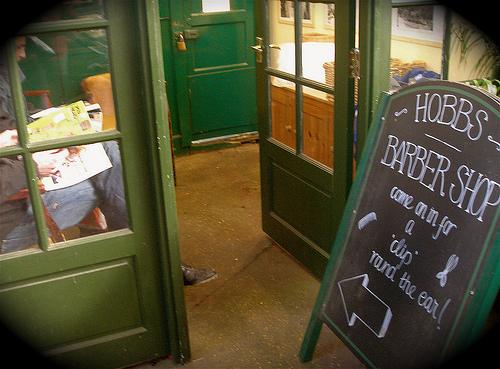 HOBBS
BARBER SHOP
come on in for
a
'clip'
round the ear!